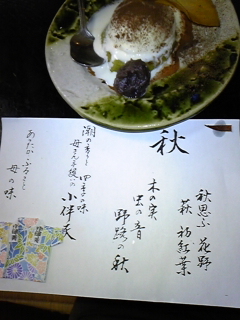 秋
秋思ふ 花野
萩 初紅葉
木の実
虫の音
野路の秋
潮の香と 四季の味
母さん手綴いの 小伴天
あたたか ふるさと
母の味